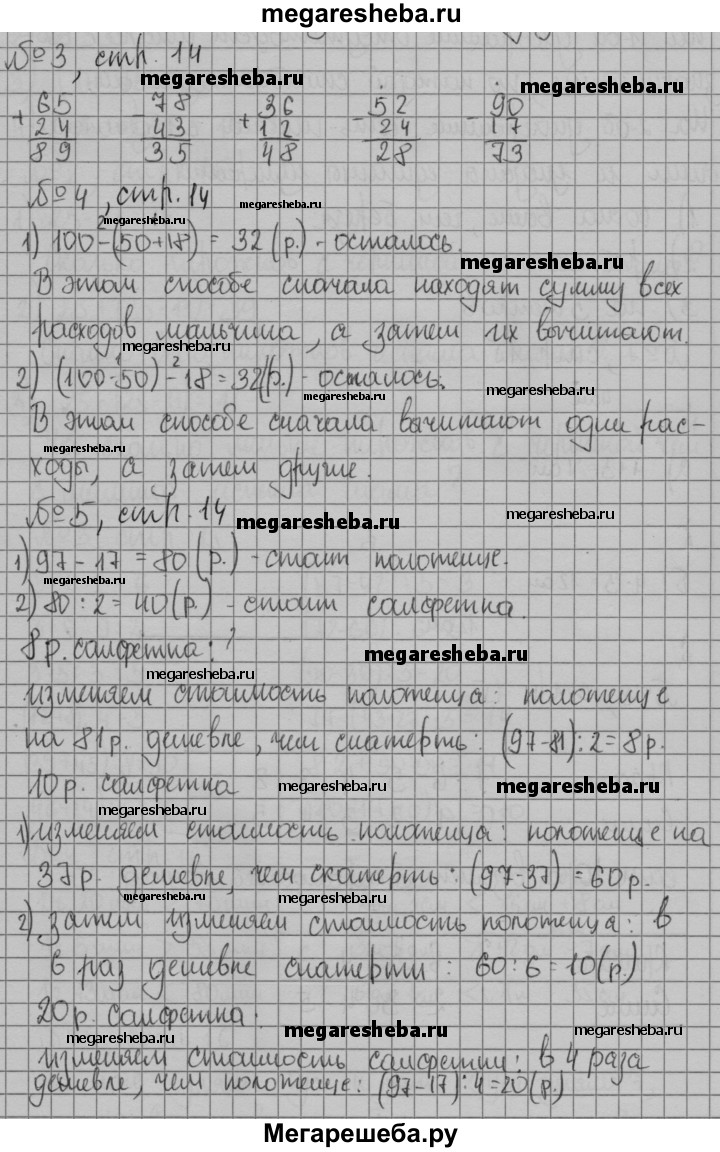 megaresheba.ru
№3, стр. 14
megaresheba.ru megaresheba.ru
65 78 36 52 90
+ 24 - 43 + 12 - 24 - 17
89 35 48 28 73
№4, стр. 14
megaresheba.ru megaresheba.ru
1) 100-(50+18) = 32 (р.) - осталось.
megaresheba.ru
В этом способе сначала находят сумму всех
расходов мальчика, а затем их вычитают.
megaresheba.ru
2) (100-50)-18=32(р.) - осталось.
megaresheba.ru megaresheba.ru
В этом способе сначала вычитают одни рас-
megaresheba.ru
ходы, а затем другие.
№5, стр. 14
megaresheba.ru megaresheba.ru
1) 97 - 17 = 80 (р.) - стоит полотенце.
megaresheba.ru
2) 80 : 2 = 40(р.) - стоит салфетка.
8р. салфетка: ?
megaresheba.ru megaresheba.ru
изменяем стоимость полотенца: полотенце
на 81р. дешевле, чем скатерть: (97-81):2=8р.
10р. салфетка
megaresheba.ru megaresheba.ru
megaresheba.ru
1) изменяем стоимость полотенца: полотенце на
37р. дешевле, чем скатерть: (97-37) = 60р.
megaresheba.ru megaresheba.ru
2) затем изменяем стоимость полотенца: в
6 раз дешевле скатерти : 60:6=10(р.)
20р. салфетка:
megaresheba.ru megaresheba.ru megaresheba.ru
изменяем стоимость салфетки: в 4 раза
дешевле, чем полотенце: (97-17):4=20(р.)
Мегарешеба.ру